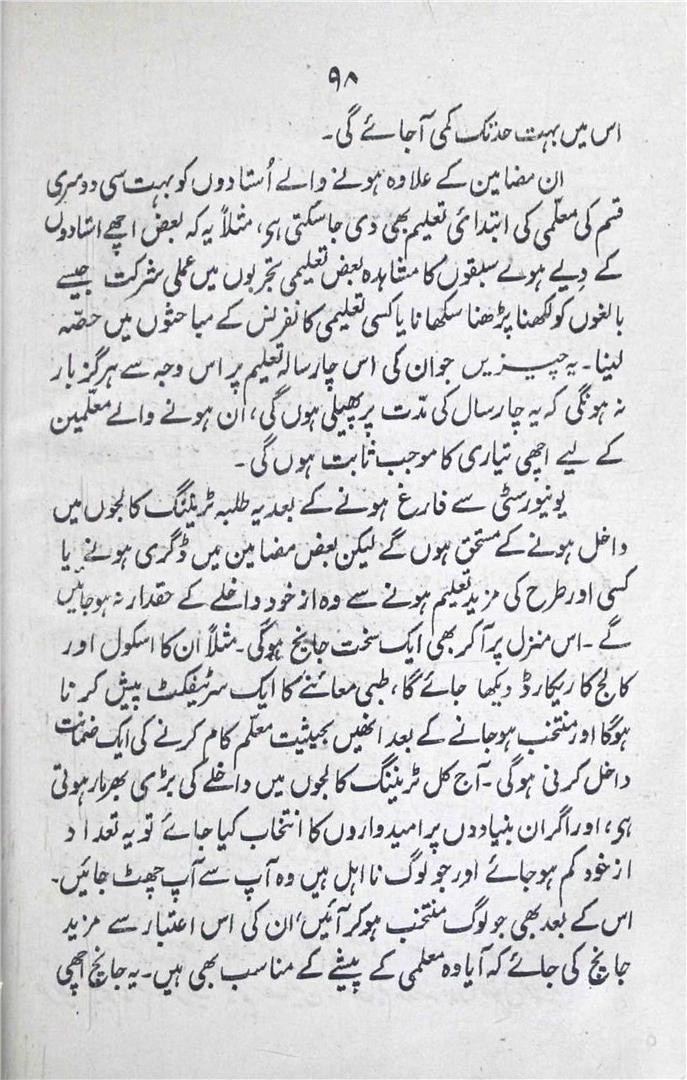 ۹۸
اس میں بہت حد تک کمی آجائے گی۔
ان مضامین کے علاوہ ہونے والے اُستادوں کو بہت سی دوسری
قسم کی معلّمی کی ابتدائی تعلیم بھی دی جاسکتی ہی، مثلاً یہ کہ بعض اچھے استادوں
کے دیے ہوے سبقوں کا مشاہدہ بعض تعلیمی تجربوں میں عملی شرکت جیسے
بالغوں کو لکھنا پڑھنا سکھانا یا کسی تعلیمی کانفرنس کے مباحثوں میں حصّہ
لینا۔ یہ چیزیں جو ان کی اس چار سالہ تعلیم پر اس وجہ سے ہرگز بار
نہ ہونگی کہ یہ چار سال کی مدّت پر پھیلی ہوں گی، ان ہونے والے معلّمین
کے لیے اچھی تیاری کا موجب ثابت ہوں گی۔
یونیورسٹی سے فارغ ہونے کے بعد یہ طلبہ ٹریننگ کالجوں میں
داخل ہونے کے مستحق ہوں گے لیکن بعض مضامین میں ڈگری ہونے یا
کسی اور طرح کی مزید تعلیم ہونے سے وہ از خود داخلے کے حقدار نہ ہوجائیں
گے۔ اس منزل پر آکر بھی ایک سخت جانچ ہوگی۔ مثلاً ان کا اسکول اور
کالج کا ریکارڈ دیکھا جائے گا، طبی معائنے کا ایک سرٹیفکٹ پیش کرنا
ہوگا اور منتخب ہوجانے کے بعد انھیں بحیثیت معلّم کام کرنے کی ایک ضمانت
داخل کرنی ہوگی۔ آج کل ٹریننگ کالجوں میں داخلے کی بڑی بھرمار ہوتی
ہی، اور اگر ان بنیادوں پر امیدواروں کا انتخاب کیا جائے تو یہ تعداد
از خود کم ہوجائے اور جو لوگ نااہل ہیں وہ آپ سے آپ چھٹ جائیں۔
اس کے بعد بھی جو لوگ منتخب ہوکر آئیں، ان کی اس اعتبار سے مزید
جانچ کی جائے کہ آیا وہ معلمی کے پیشے کے مناسب بھی ہیں۔ یہ جانچ اچھی